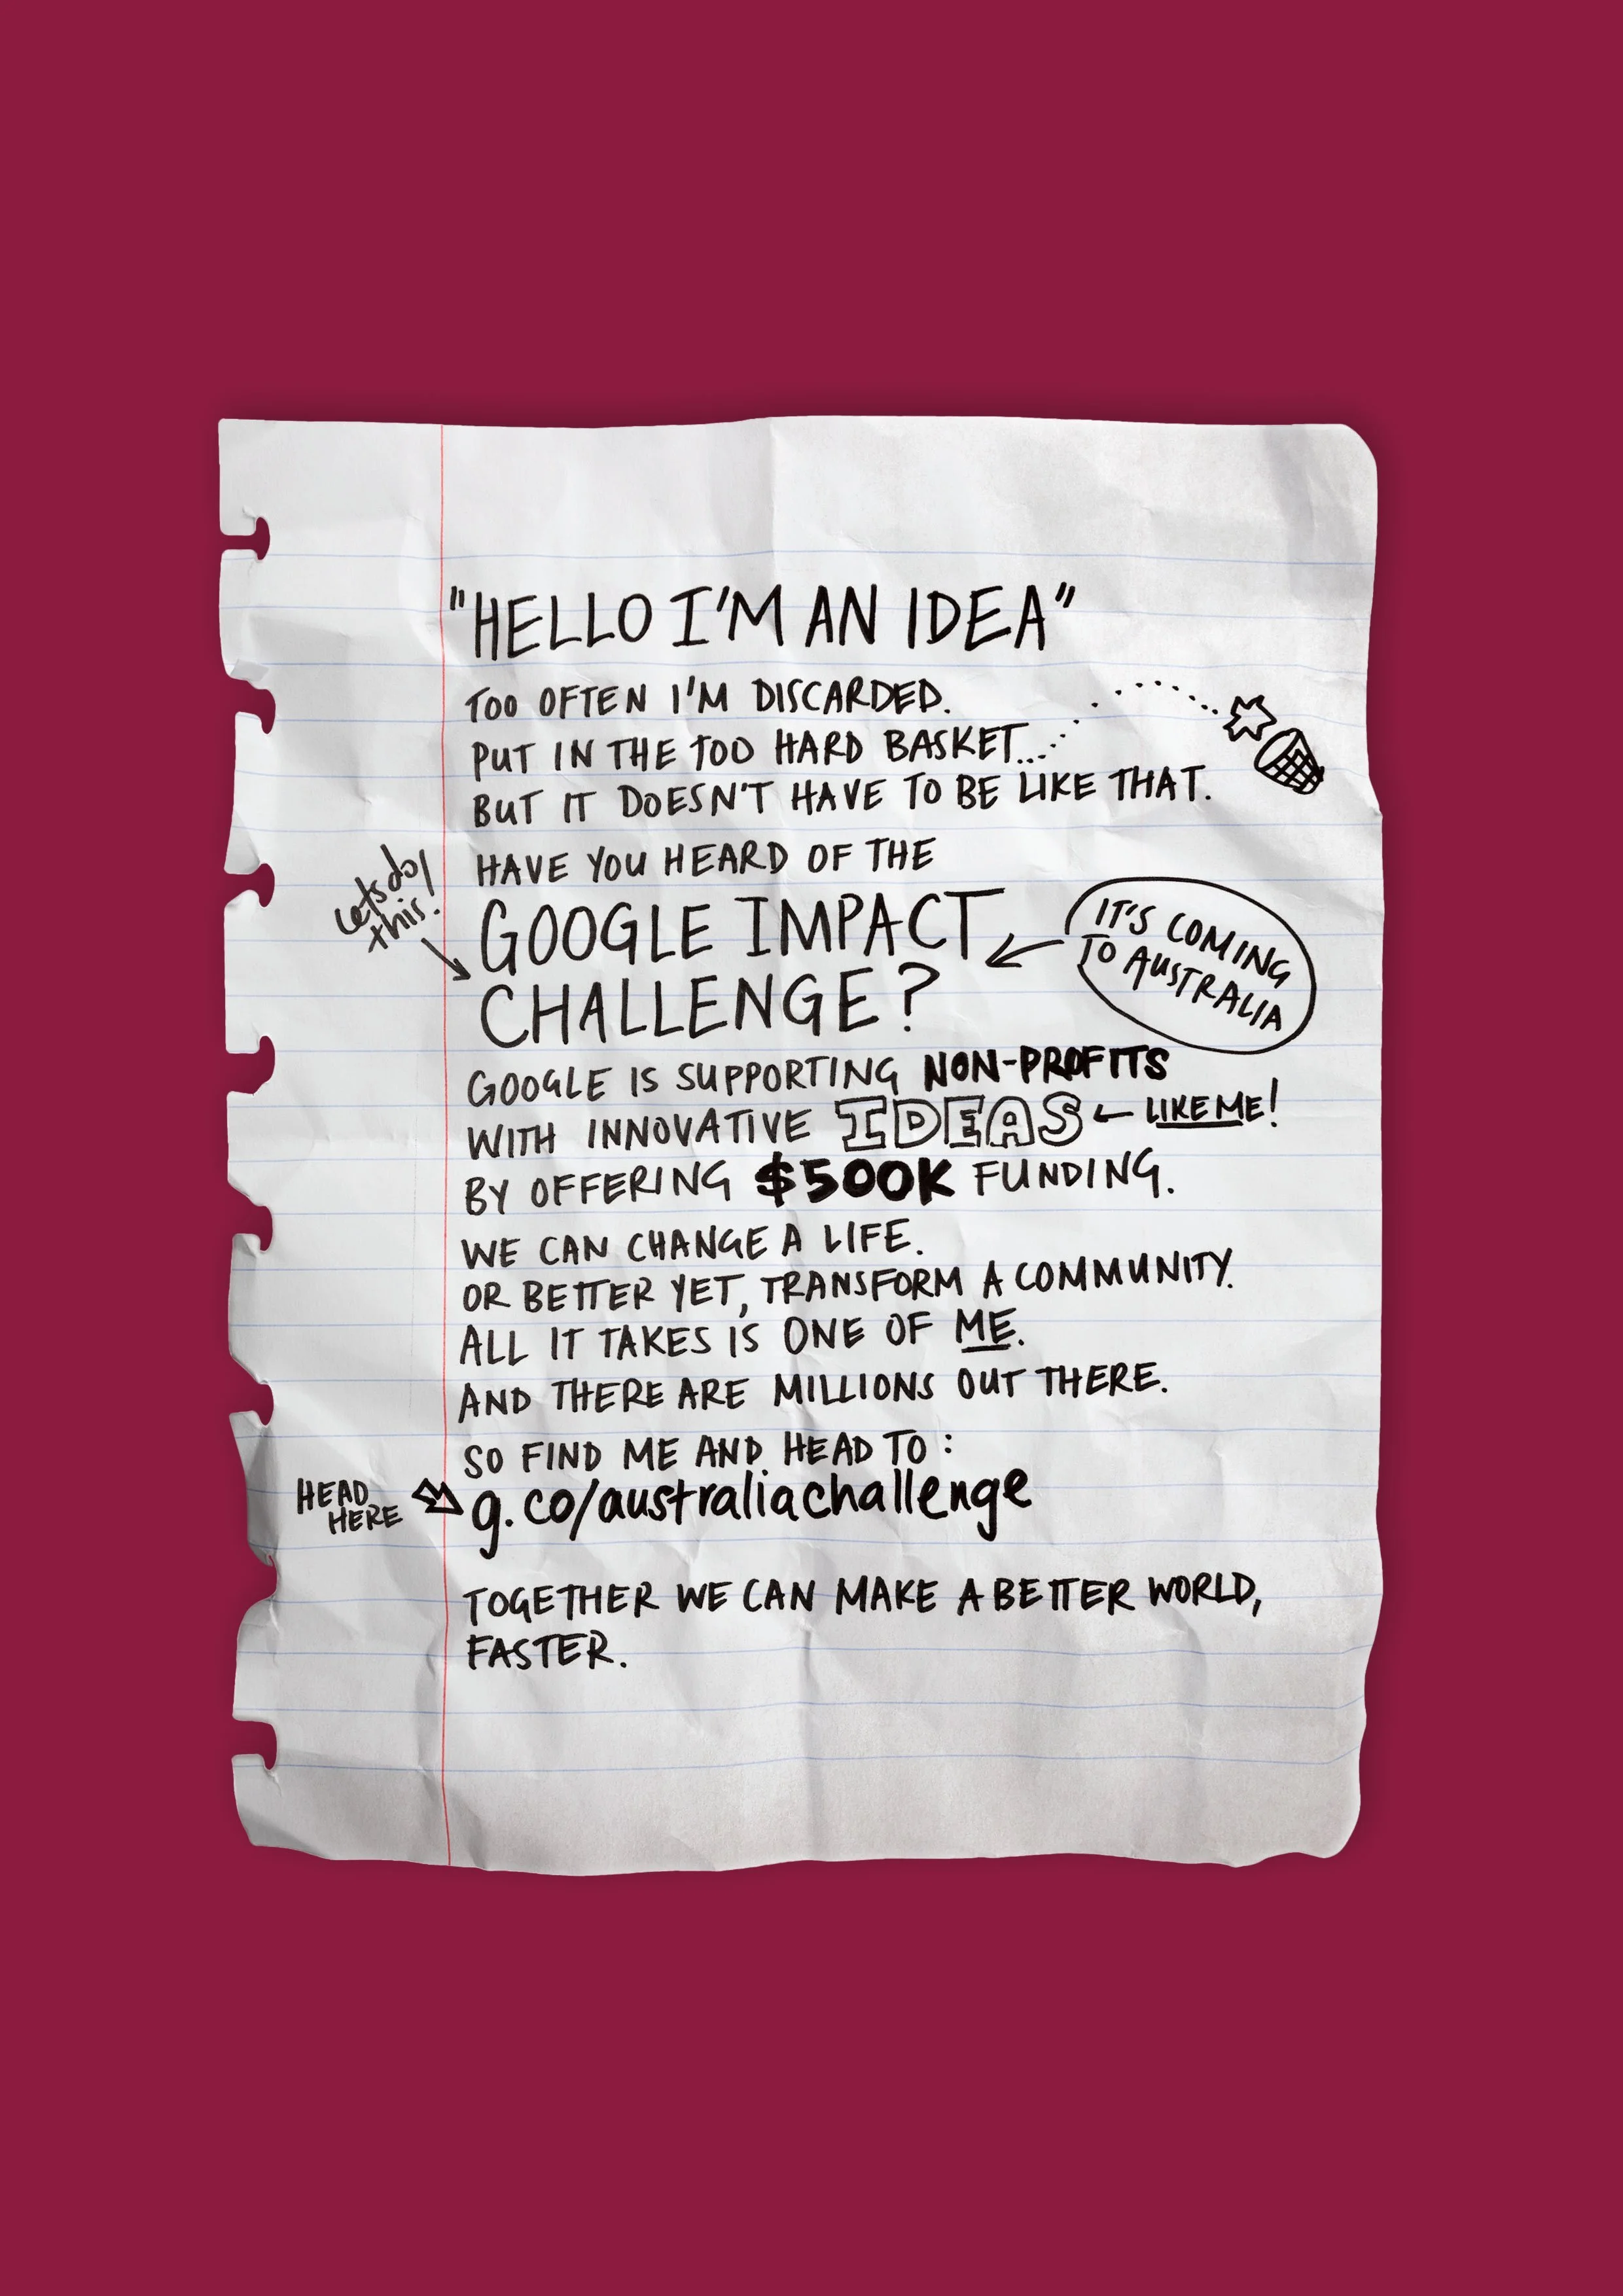 "HELLO I'M AN IDEA"
TOO OFTEN I'M DISCARDED.
PUT IN THE TOO HARD BASKET...
BUT IT DOESN'T HAVE TO BE LIKE THAT.
HAVE YOU HEARD OF THE
Lets do
this!
GOOGLE IMPACT
CHALLENGE?
IT'S COMING
TO AUSTRALIA
GOOGLE IS SUPPORTING NON-PROFITS
WITH INNOVATIVE IDEAS ← LIKE ME!
BY OFFERING $500K FUNDING.
WE CAN CHANGE A LIFE.
OR BETTER YET, TRANSFORM A COMMUNITY.
ALL IT TAKES IS ONE OF ME.
AND THERE ARE MILLIONS OUT THERE.
SO FIND ME AND HEAD TO:
HEAD
HERE
g.co/australiachallenge
TOGETHER WE CAN MAKE A BETTER WORLD,
FASTER.